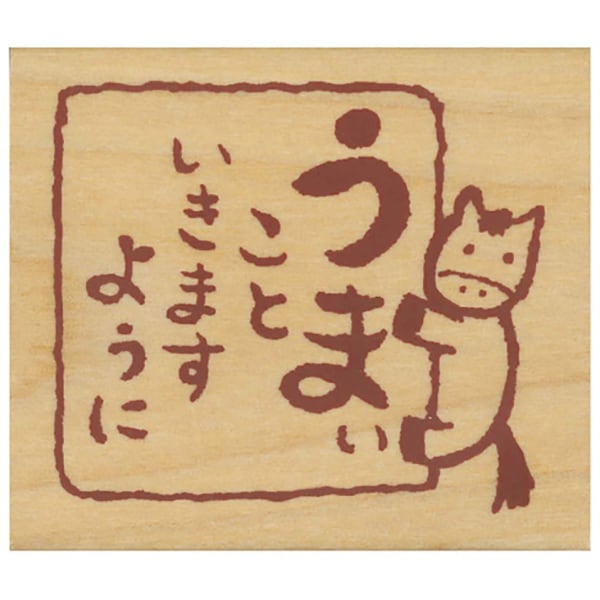 うまい
こと
いきます
ように